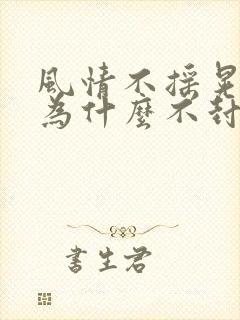 風情不搖晃
為什麼不封
書生君